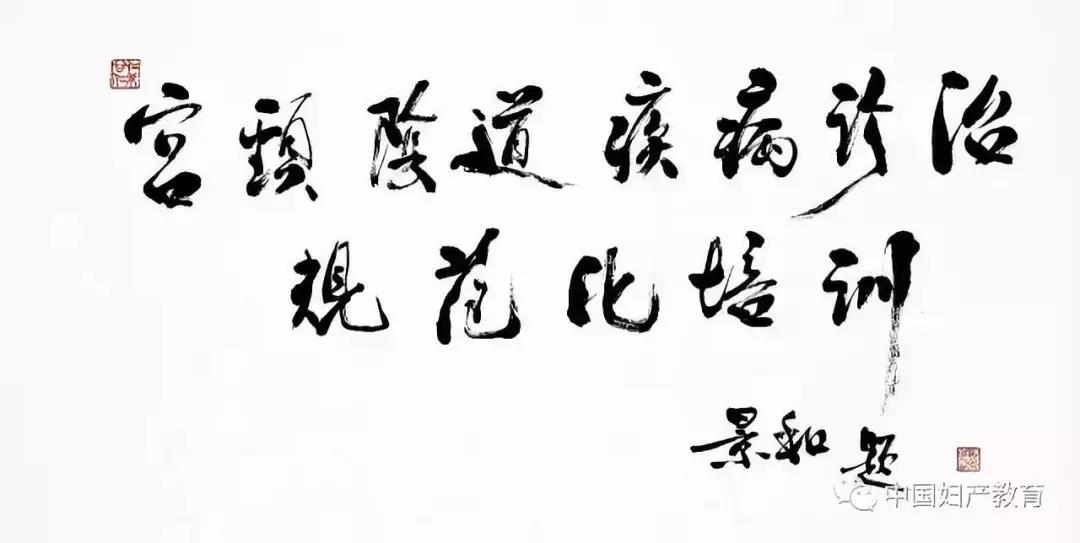 宫頸陰道疾病診治
規范化培训
景和题
中国妇产教育